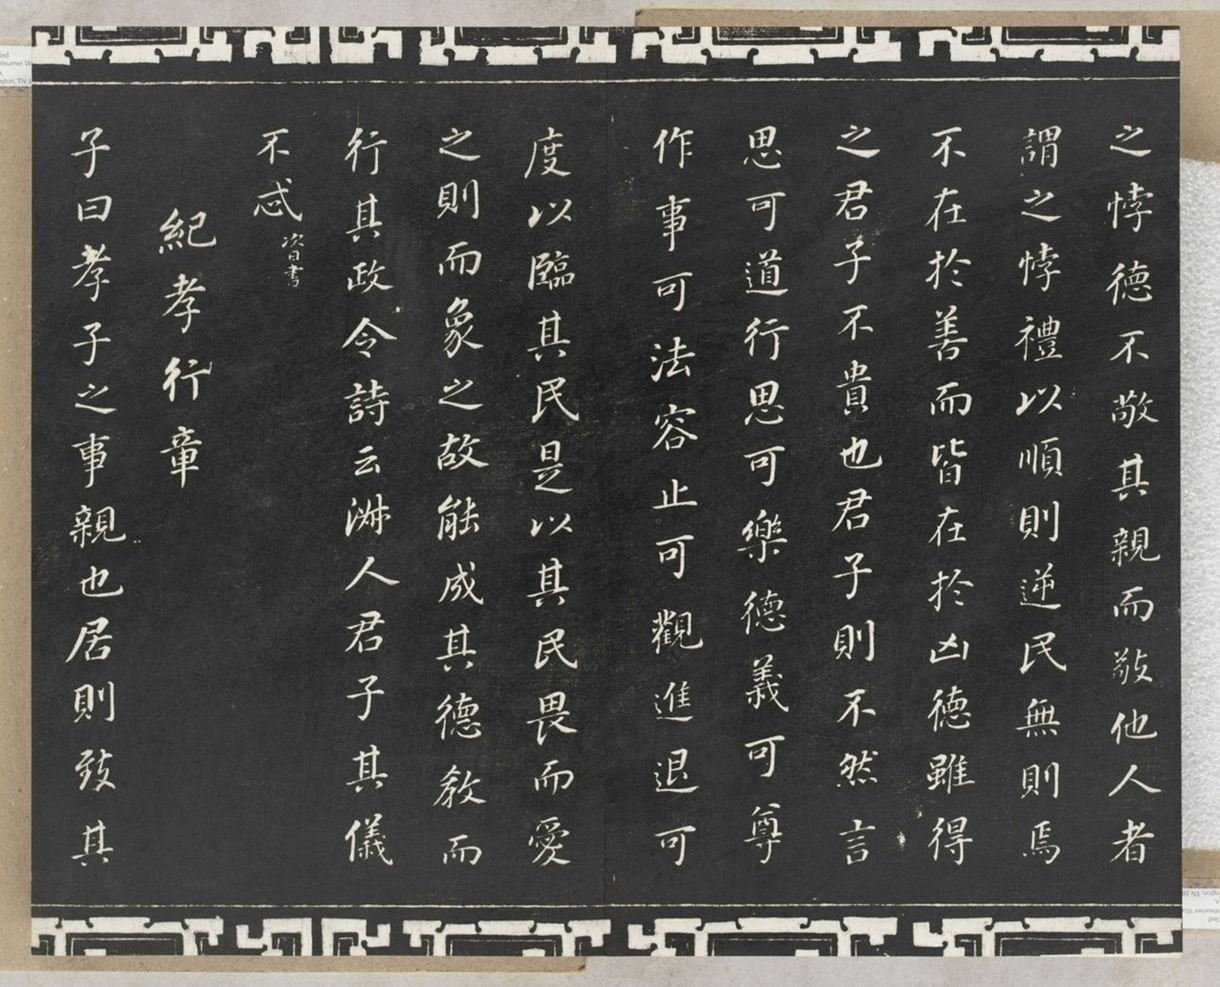 之悖德不敬其親而敬他人者
謂之悖禮以順則逆民無則焉
不在於善而皆在於凶德雖得
之君子不貴也君子則不然言
思可道行思可樂德義可尊
作事可法容止可觀進退可
度以臨其民是以其民畏而愛
之則而象之故能成其德教而
行其政令詩云淑人君子其儀
不忒 次日書
紀孝行章
子曰孝子之事親也居則致其